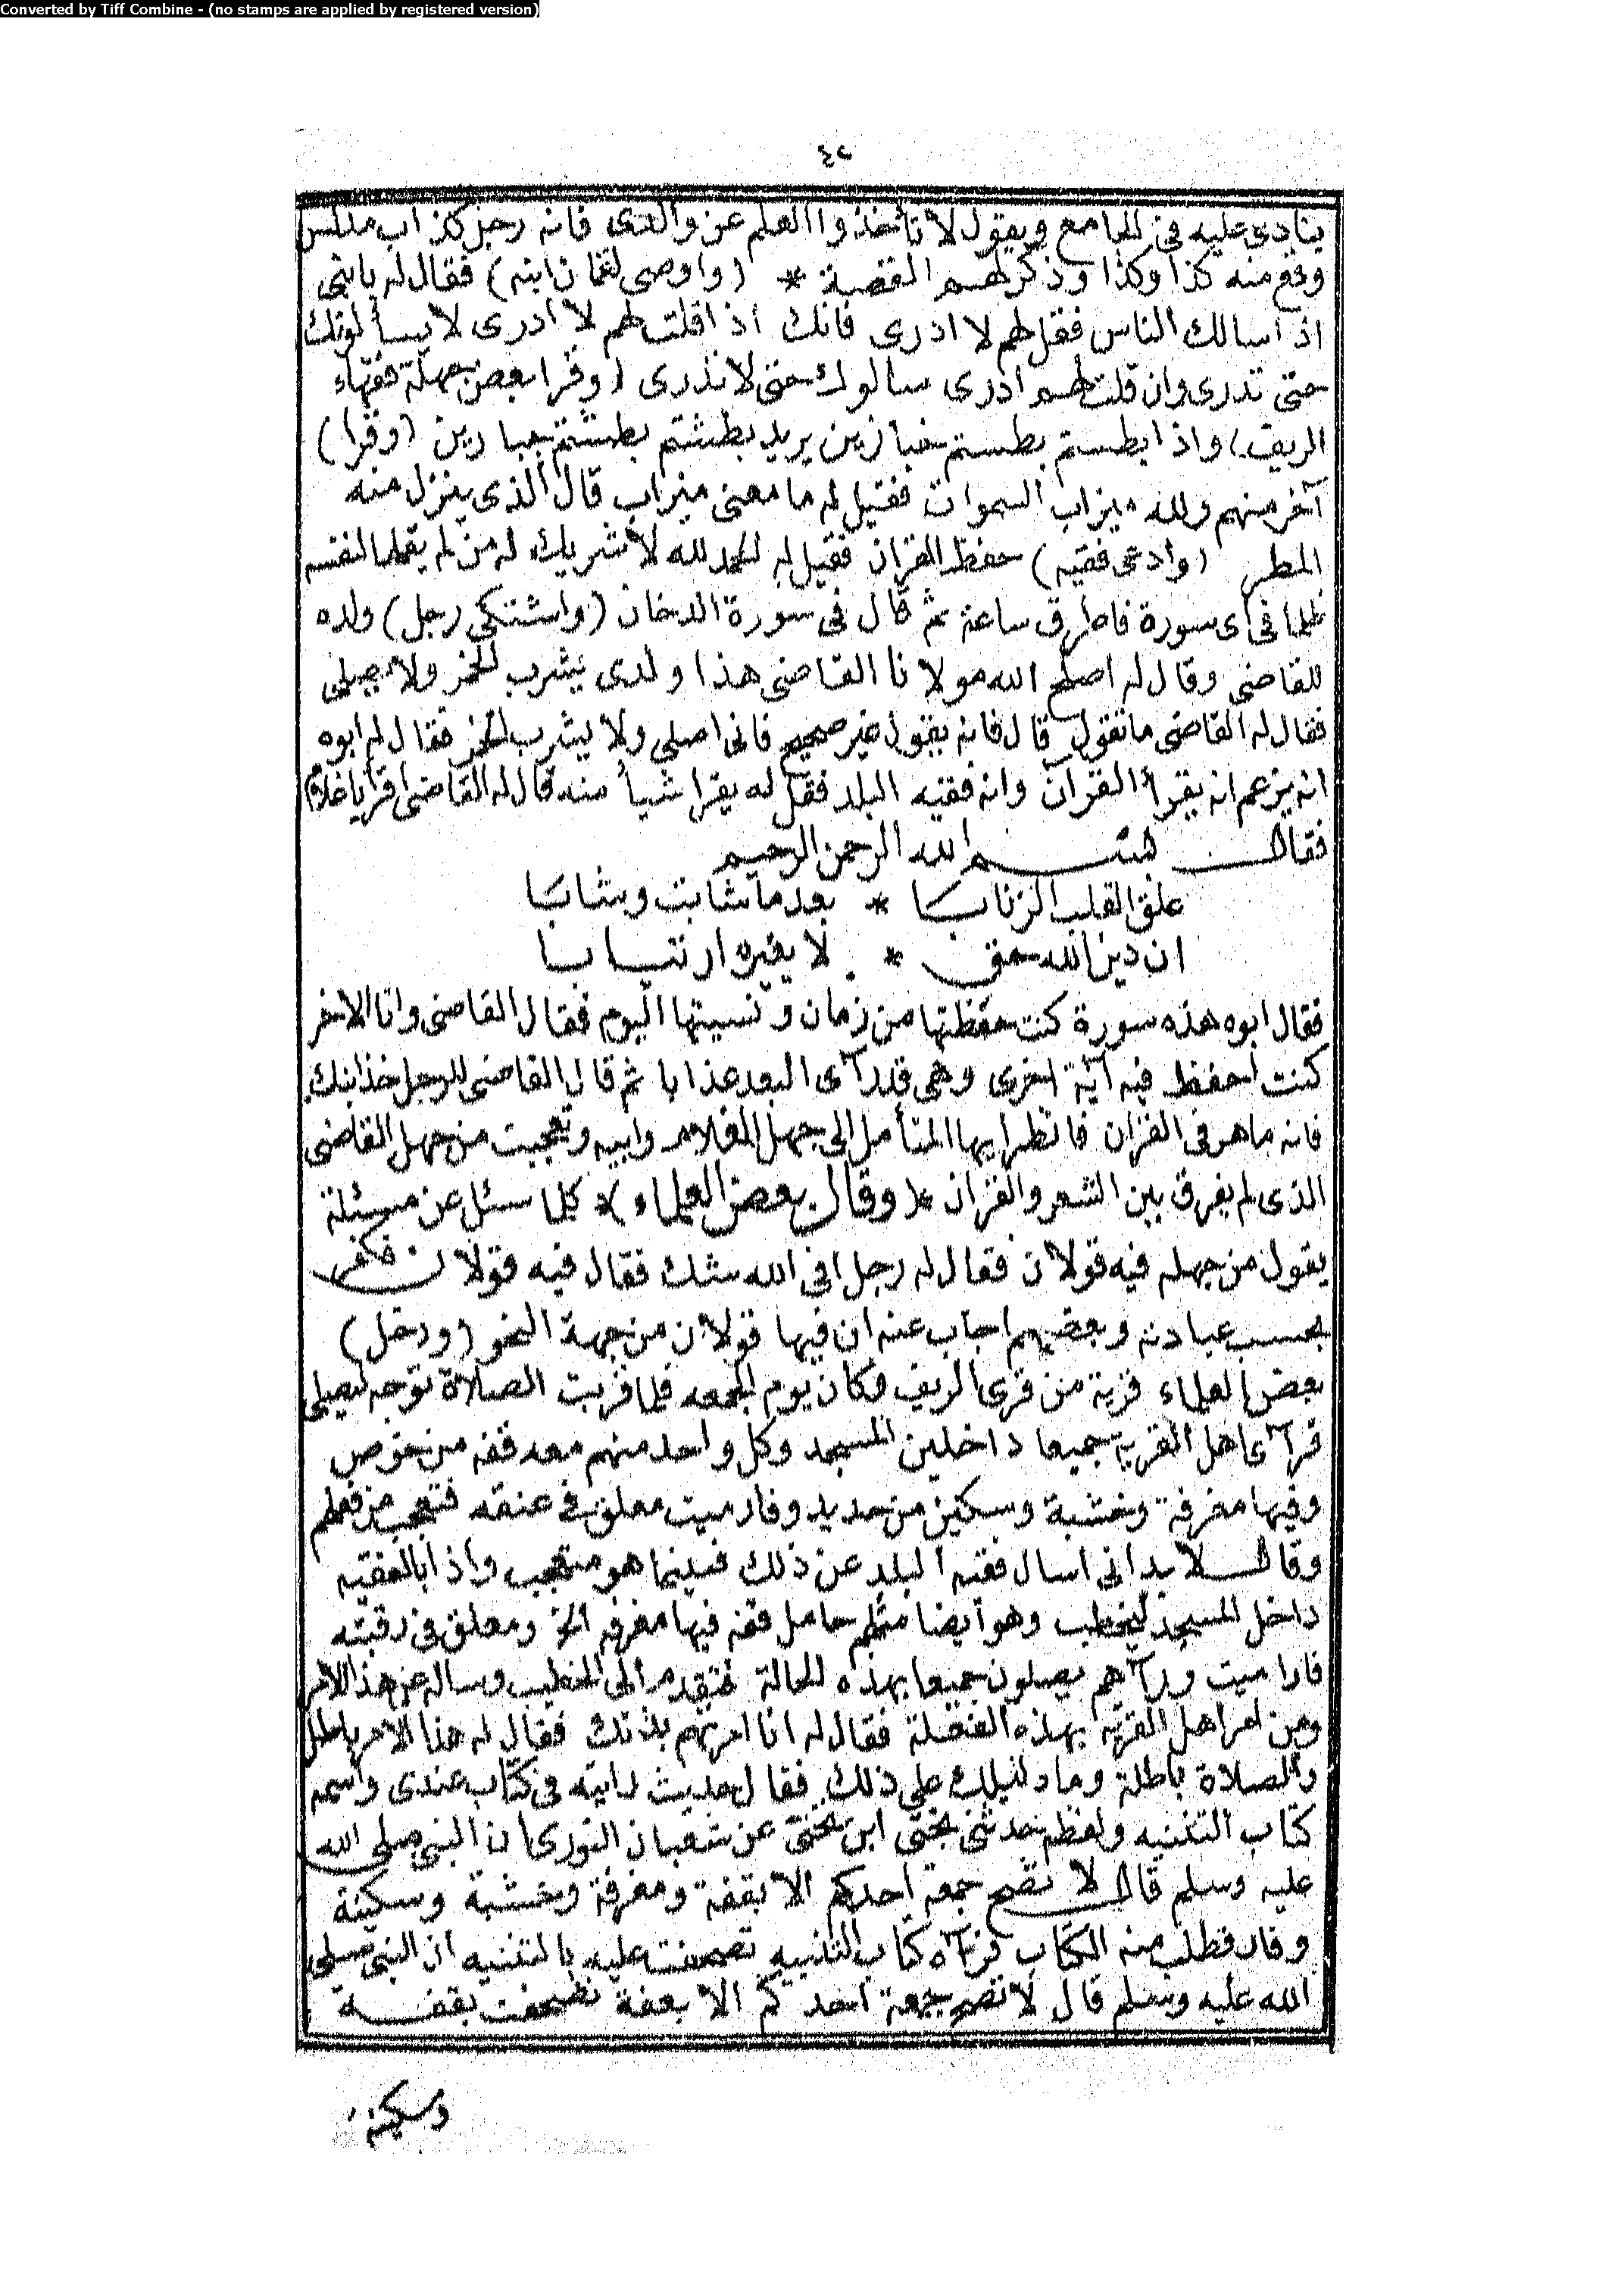 Converted by Tiff Combine - (no stamps are applied by registered version)
٤٢
ينادى عليه فى الجامع ويقول لا تأخذوا العلم عن والدى فانه رجل كذاب مدلس
وقع منه كذا وكذا وذكر لهم القصة * (واوصى لقمان ابنه) فقال له يا بنى
اذا سالك الناس فقل لهم لا ادرى فانك اذا قلت لهم لا ادرى لا يسألونك
حتى تدرى وان قلت لهم ادرى سالوك حتى لا تدرى (وقرا بعض جهلة فقهاء
الريف) واذا بطستم بطستم خبازين يريد بطشتم بطشتم جبارين (وقرا)
آخر منهم ولله ميزاب السموات فقيل له ما معنى ميزاب قال الذى ينزل منه
المطر (وادعى فقيه) حفظ القران فقيل له الحمد لله لا شريك له من لم يقلها لنفسه
ظلما فى اى سورة فاطرق ساعة ثم قال فى سورة الدخان (واشتكى رجل) ولده
للقاضى وقال له اصلح الله مولانا القاضى هذا ولدى يشرب الخمر ولا يصلى
فقال له القاضى ما تقول قال فانه يقول غير صحيح فانى اصلى ولا يشرب الخمر فقال له ابوه
انه يزعم انه يقرأ القرآن وانه فقيه البلد فقل له يقرا شيأ منه قال له القاضى اقرأ يا غلام
فقال بسم الله الرحمن الرحيم
علق القلب الربابا * بعد ما شابت وشابا
ان دين الله حق * لا يغيره ارتيابا
فقال ابوه هذه سورة كنت حفظتها من زمان ونسيتها اليوم فقال القاضى وانا الاخر
كنت احفظ فيه آية اخرى وهى قد رآى البعد عذابا ثم قال القاضى للرجل خذ ابنك
فانه ماهر فى القران فانظر ايها المتأمل الى جهل الغلام وابيه وتعجبت من جهل القاضى
الذى لم يفرق بين الشعر والقران * (وقال بعض العلماء) * كلما سئل عن مسئلة
يقول من جهله فيه قولان فقال له رجل افى الله شك فقال فيه قولان فكفر
بحسب عبادته وبعضهم اجاب عنه ان فيها قولان من جهة النحو (ودخل)
بعض العلماء قرية من قرى الريف وكان يوم الجمعه فلما قربت الصلاة توجه ليصلى
فرآى اهل القرية جميعا داخلين المسجد وكل واحد منهم معه قفه من خوص
وفيها مغرفة وخشبة وسكين من حديد وفار ميت معلق فى عنقه فتعجب من فعلهم
وقال لا بد انى اسال فقيه البلد عن ذلك فبينما هو متعجب واذا بالفقيه
داخل المسجد ليخطب وهو ايضا مثلهم حامل قفه فيها مغرفه الخ ومعلق فى رقبته
فارا ميت ورآهم يصلون جميعا بهذه الحالة فتقدم الى الخطيب وساله عن هذا الامر
ومن امر اهل القرية بهذه الفعلة فقال له انا امرتهم بذلك فقال له هذا الامر باطل
والصلاة باطلة وما دليلك على ذلك فقال حديث رايته فى كتاب عندى واسمه
كتاب التتنبيه ولفظه حدثنى بختى ابن بختى عن شعبان النورى ان النبى صلى الله
عليه وسلم قال لا تصح جمعة احدكم الا بقفة ومغرفة وخشبة وسكينة
وفار فطلب منه الكتاب فرآه كتاب التنبيه تصحفت عليه بالتتنبيه ان النبى صلى
الله عليه وسلم قال لا تصح جمعة احدكم الا بعفة تصحفت بقفـة
وسكينة